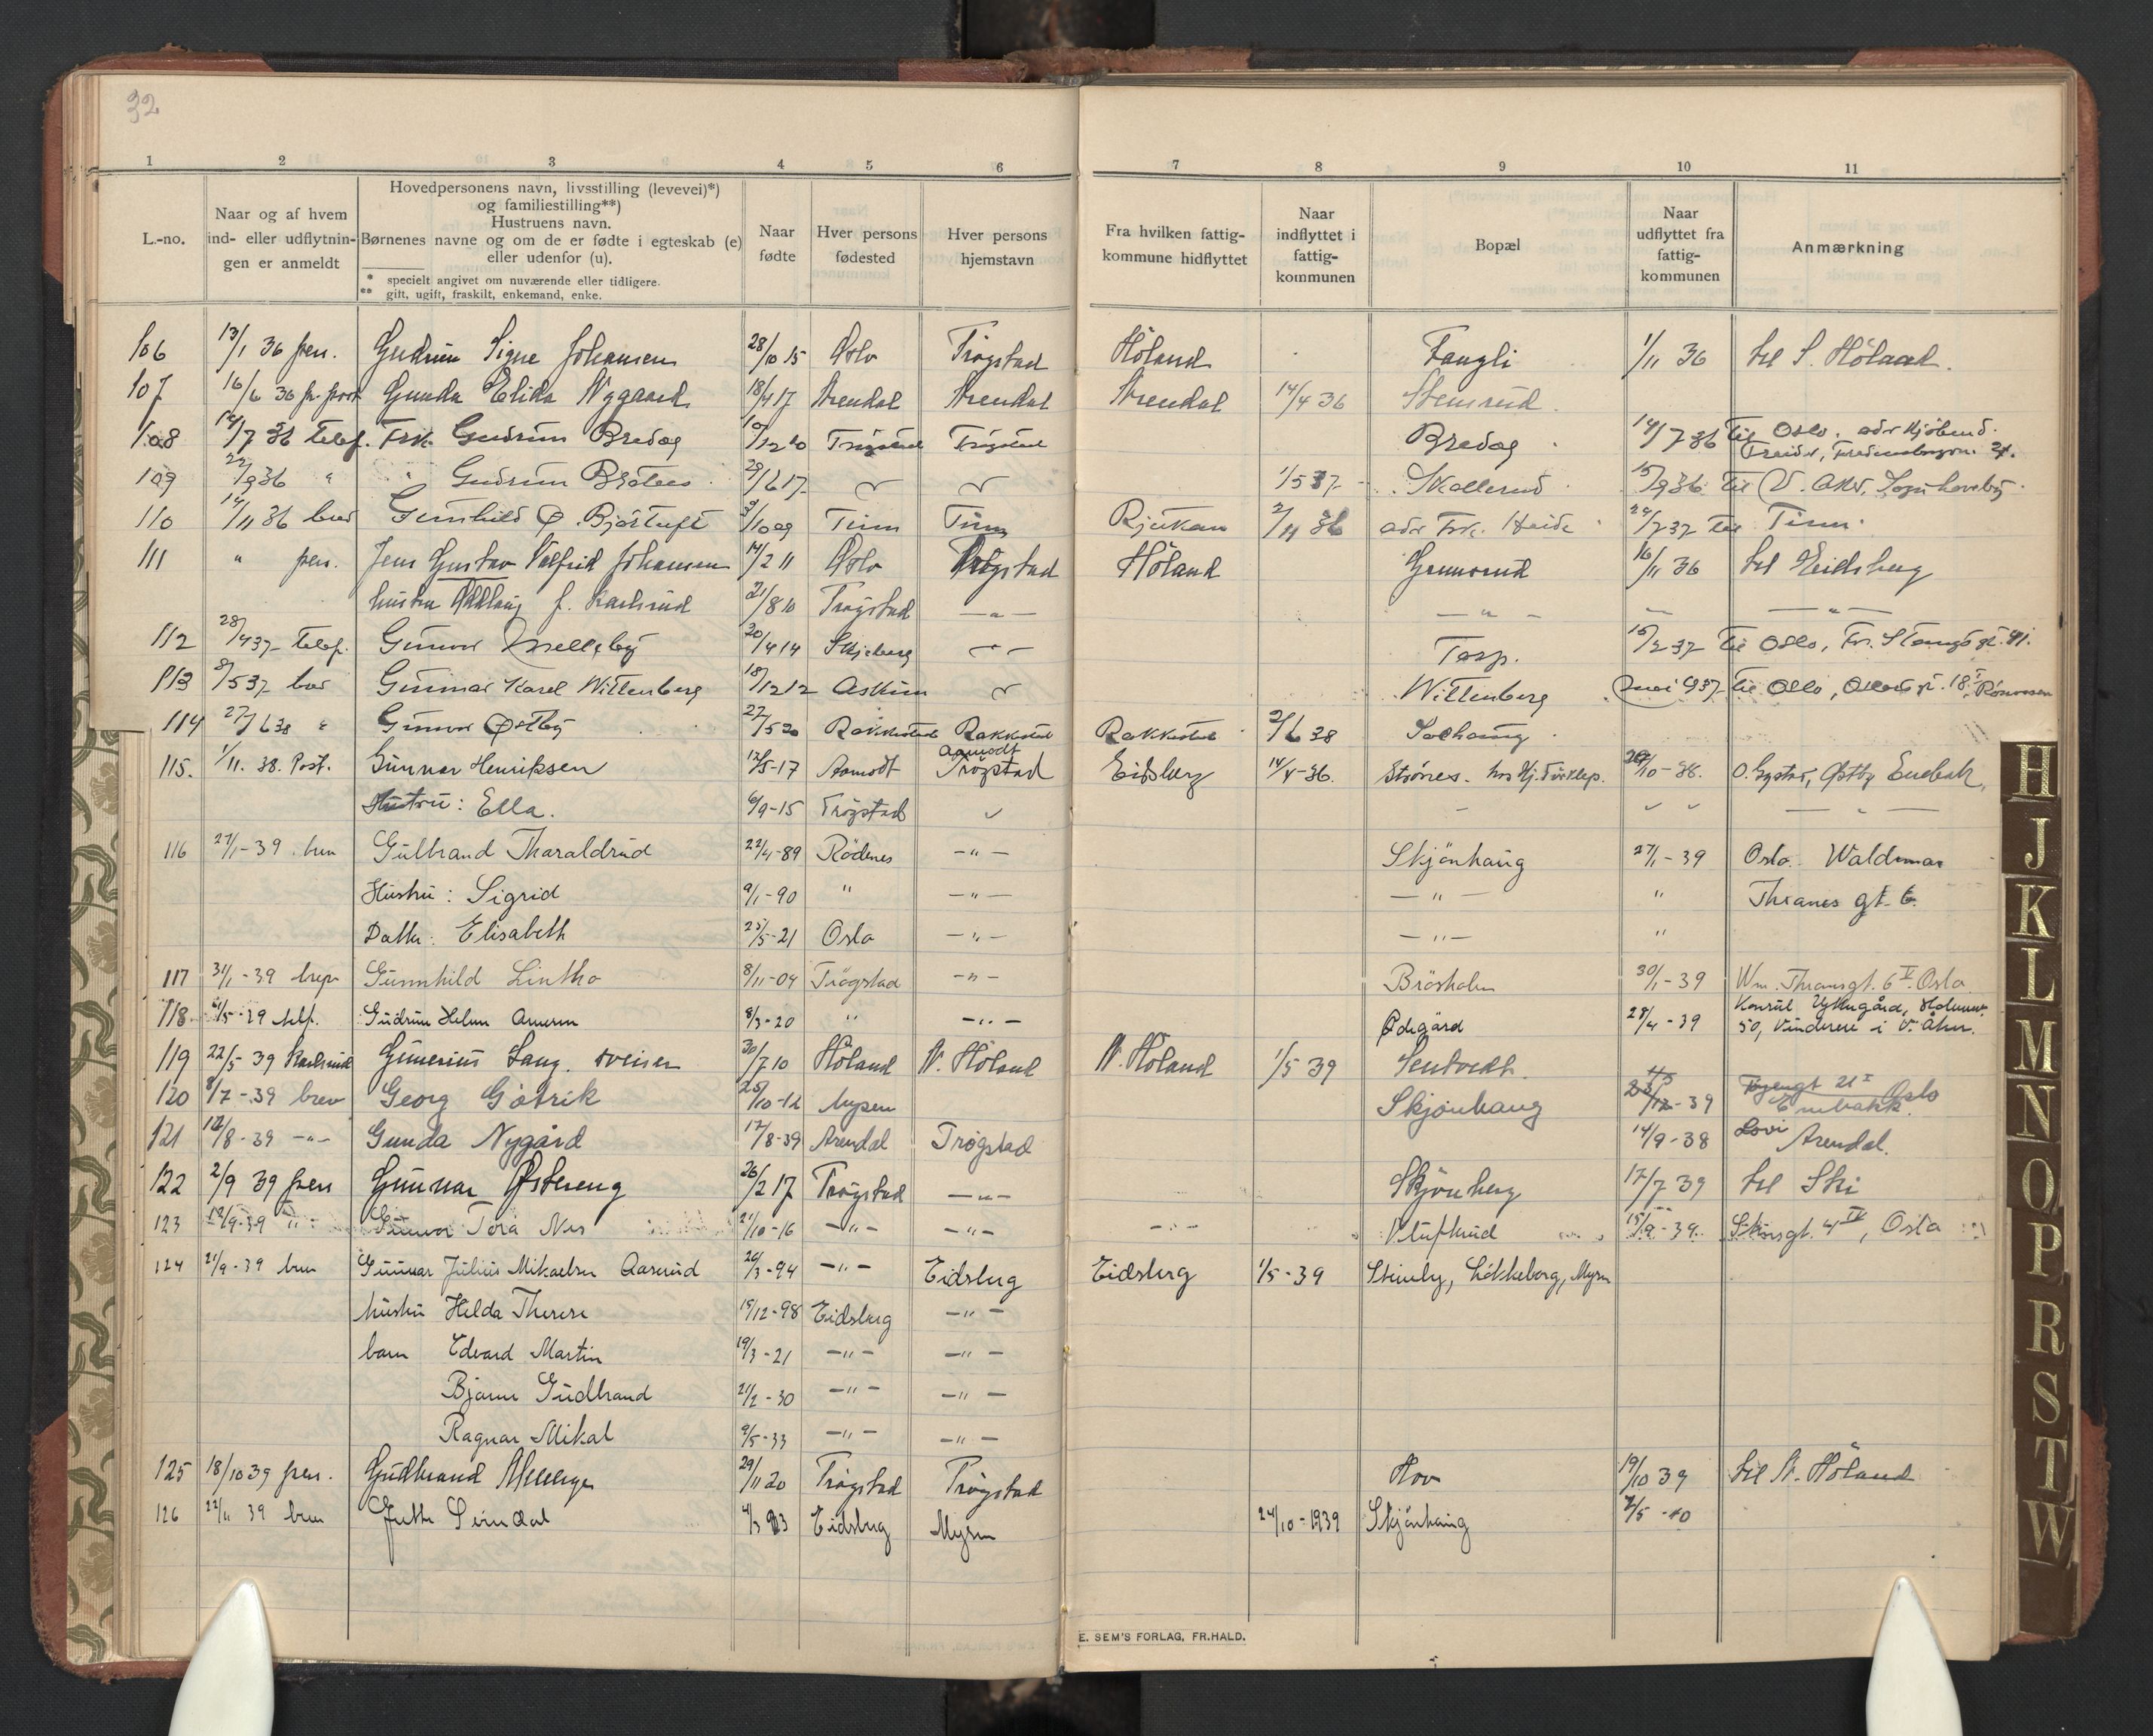 32
1 2 3 4 5 6 7 8 9 10 11
L.-no.
Naar og af hvem
ind- eller udflytnin-
gen er anmeldt
Hovedpersonens navn, livsstilling (levevei)*)
og familiestilling**)
Hustruens navn.
Børnenes navne og om de er fødte i egteskab (e)
eller udenfor (u).
* specielt angivet om nuværende eller tidligere.
** gift, ugift, fraskilt, enkemand, enke.
Naar
fødte
Hver persons
fødested
Hver persons
hjemstavn
Fra hvilken fattig-
kommune hidflyttet
Naar
indflyttet i
fattig-
kommunen
Bopæl
Naar
udflyttet fra
fattig-
kommunen
Anmærkning
106 13/1 36 pers. Gudrun Signe Johansen 28/10 15 Oslo Trøgstad Höland Fangli 1/11 36 til S. Höland.
107 16/6 36 Gunda Elida Nygaard 18/4 17 Arendal Arendal Arendal 14/4 36 Stenrud
108 14/7 36 telef. Frk. Gudrun Bredag Trøgstad Trøgstad Bredag 14/7 36 til Oslo.
109 22/9 36 " " Gudrun Bråten 29/6 17 1/5 37 Skallerud 15/9 36 til V. Aker,
110 14/11 36 brev Gunhild Ø. Bjåstuft 3/10 09 Tinn Tinn Rjukan 2/11 36 adr Frk. Heide 24/7 37 til Tinn.
111 " pers. Jens Gustav Valfrid Johansen 14/2 11 Oslo Trøgstad Höland Grunnerud 16/11 36 til Eidsberg
hustru f. Karlsrud 21/8 10 Trøgstad —"— —"— — —"—
112 28/4 37 telef. Gunvor Melleby 20/4 14 Skjeberg Torp. 15/2 37 til Oslo, Fr. Stangs gt. 41.
113 8/5 37 brev Gunnar Karel Wittenberg 18/12 12 Askim Wittenberg mai 1937 til Oslo, 18 I,
114 27/6 38 " Gunvor Østby 27/5 20 Rakkestad Rakkestad Rakkestad 2/6 38
115. 1/11. 38. Post. Gunnar Henriksen 12/5-17 Aamodt Aamodt Trøgstad Eidsberg 14/4-36. Strönes. hos 10-36. Østby Enebak,
Hustru: Ella. 6/9-15 Trøgstad
116 27/1-39 brev Gulbrand Tharaldrud 22/4-89 Rödenes —"— Skjönhaug 27/1-39 Oslo. Waldemar
Hustru: Sigrid 9/1-90 " —"— —"— " Thranes gt. 6.
Datter: Elisabeth 25/5-21 Oslo —"— —"— "
117 31/1-39 Gunnhild Lintho 8/11-04 Trögstad —"— Bråtholm 30/1-39 Wm. Thranes gt. 6 V. Oslo
118 5-39 telf. Gudrun Helene 8/3-20 " —"— Ødegård 28/4-39 Konsul 50, Vinderen i V. Aker.
119 22/5 39 Karlsrud Gunerius Lang. sveiser 30/7 10 Höland N. Höland N. Höland 1/5 39 Sentvedt.
120 8/7-39 brev Georg Gåtrik 25/10-12 Mysen Skjönhaug 39 21 I Oslo
121 12/8-39 —"— Gunda Nygård 17/8-39 Arendal Trøgstad 14/9-38 Arendal.
122 2/9 39 pers Gunnar Østereng 26/2 17 Trøgstad —"— Skjönberg 17/7 39 til Ski
123 12/9-39 " Gunvor Tora Nes 21/10-16 —"— —"— —"— 15/9-39. 4 IV, Oslo
124 21/9-39 brev Gunnar Julius Mikaelsen Aaserud 26/3-94 —"— Eidsberg Eidsberg 1/5-39 Stenby, Løkkeberg, Mysen
hustru Helda Therese 15/12-98 Eidsberg —"—
barn Edvard Martin 19/3-21 —"— —"—
Bjarne Gudbrand 21/2-30 —"— —"—
Ragnar Mikal 9/5-33 —"— —"—
125 18/10 39 pers. Gudbrand 29/11 20 Trøgstad Trøgstad Hov 19/10 39 til N. Höland
126 22/11 39 brev Eidsberg Mysen 24/10-1939 Skjönhaug 2/5-40
E. SEM'S FORLAG, FR.HALD.
H
J
K
L
M
N
O
P
R
S
T
W